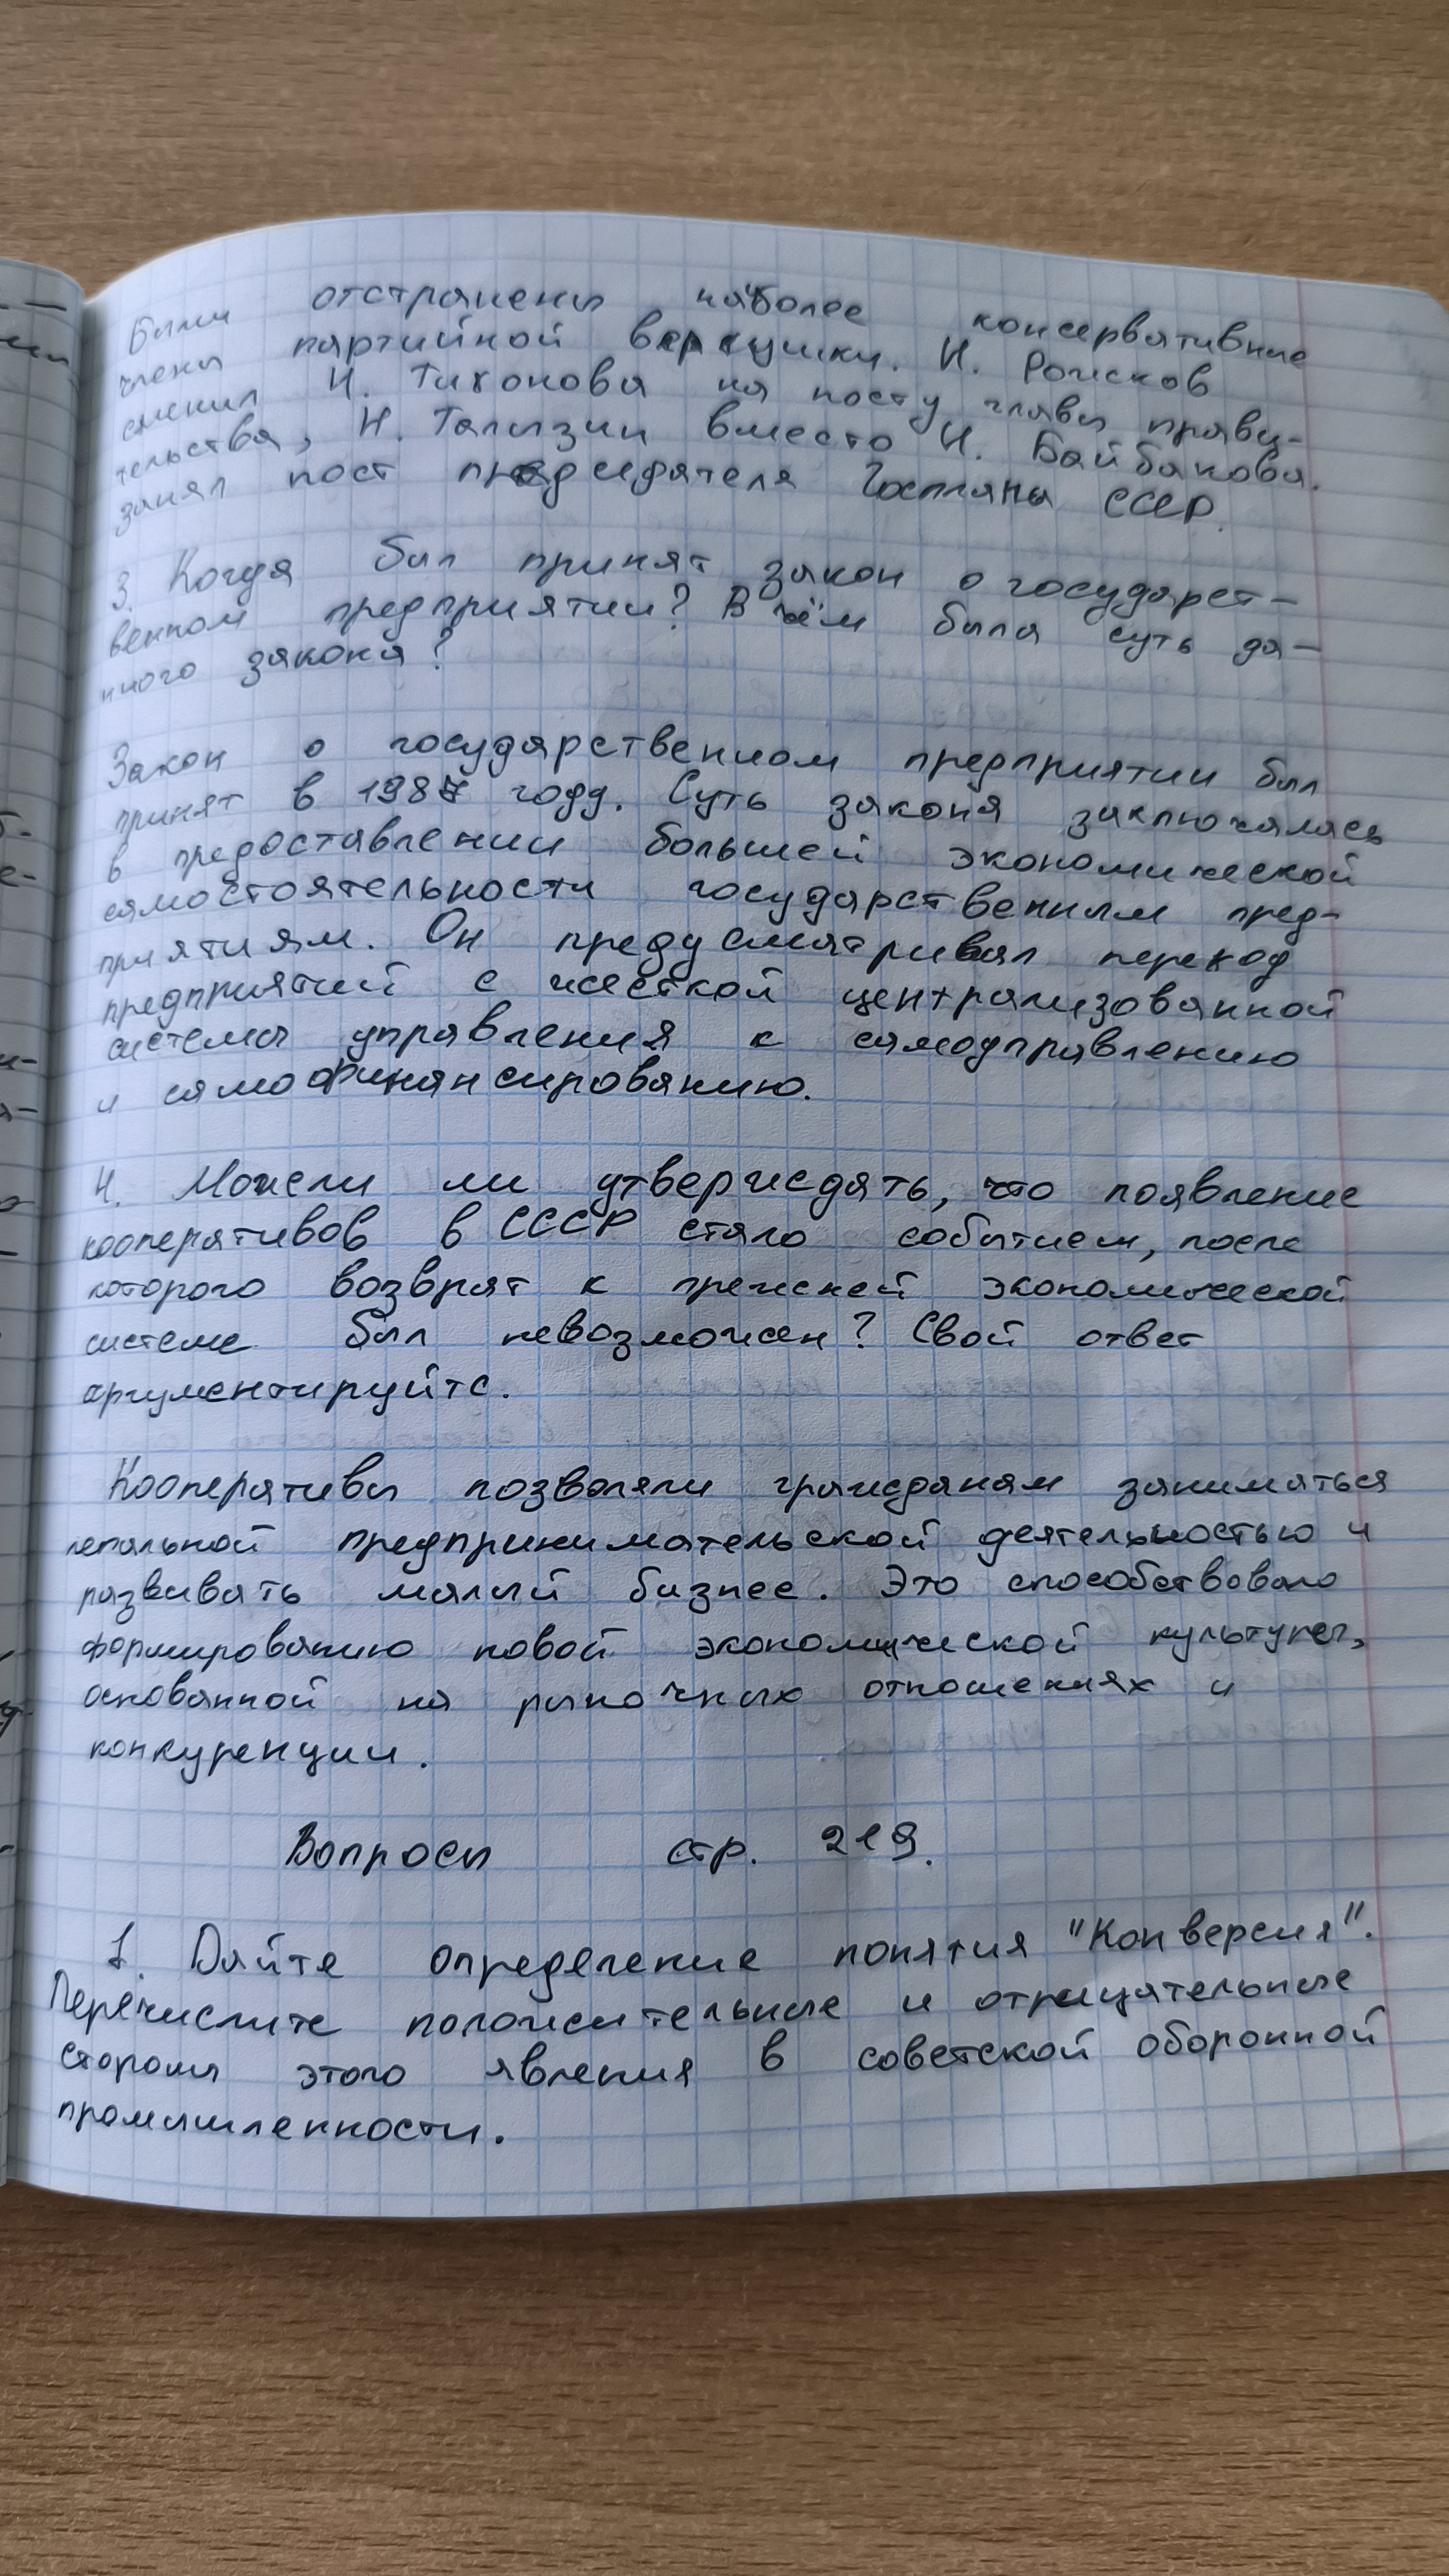 были отстранены наиболее консервативные
члены партийной верхушки. Н. Рыжков
сменил Н. Тихонова на посту главы прави-
тельства, Н. Талызин вместо Н. Байбакова.
занял пост председателя Госплана СССР.
3. Когда был принят закон о государст-
венном предприятии? В чём была суть да-
нного закона?
Закон о государственном предприятии был
принят в 1987 году. Суть закона заключалась
в предоставлении большей экономической
самостоятельности государственным пред-
приятиям. Он предусматривал переход
предприятий с жесткой централизованной
системы управления к самоуправлению
и самофинансированию.
4. Можели ли утверждать, что появление
кооперативов в СССР стало событием, после
которого возврат к прежней экономической
системе был невозможен? Свой ответ
аргументируйте.
Кооперативы позволяли гражданам заниматься
легальной предпринимательской деятельностью и
развивать малый бизнес. Это способствовало
формированию новой экономической культуры,
основанной на рыночных отношениях и
конкуренции.
Вопросы стр. 219.
1. Дайте определение понятия "Конверсия".
Перечислите положительные и отрицательные
стороны этого явления в советской оборонной
промышленности.